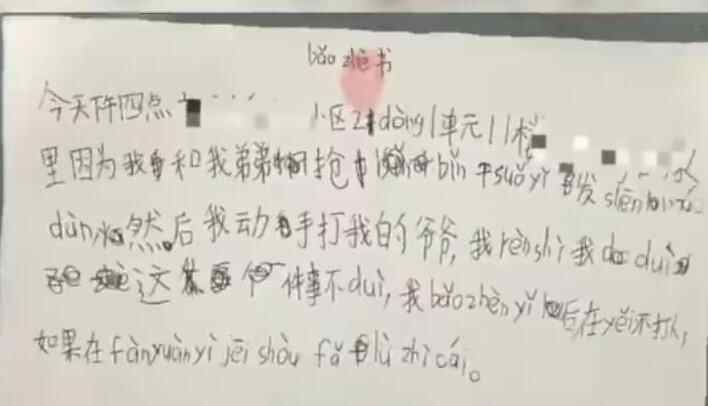 bǎo zhèng书
今天下午四点 小区2dòng1单元11楼
里因为我和我弟弟抢 bǐn干suǒyǐ发shēn
dùn,然后我动手打我的爷爷,我rènshi我 duì
这 件事不duì,我bǎozhèn yǐ后在yěi不打人,
如果在fànyuànyì jēi shòu fǎ lǜ zhì cái。